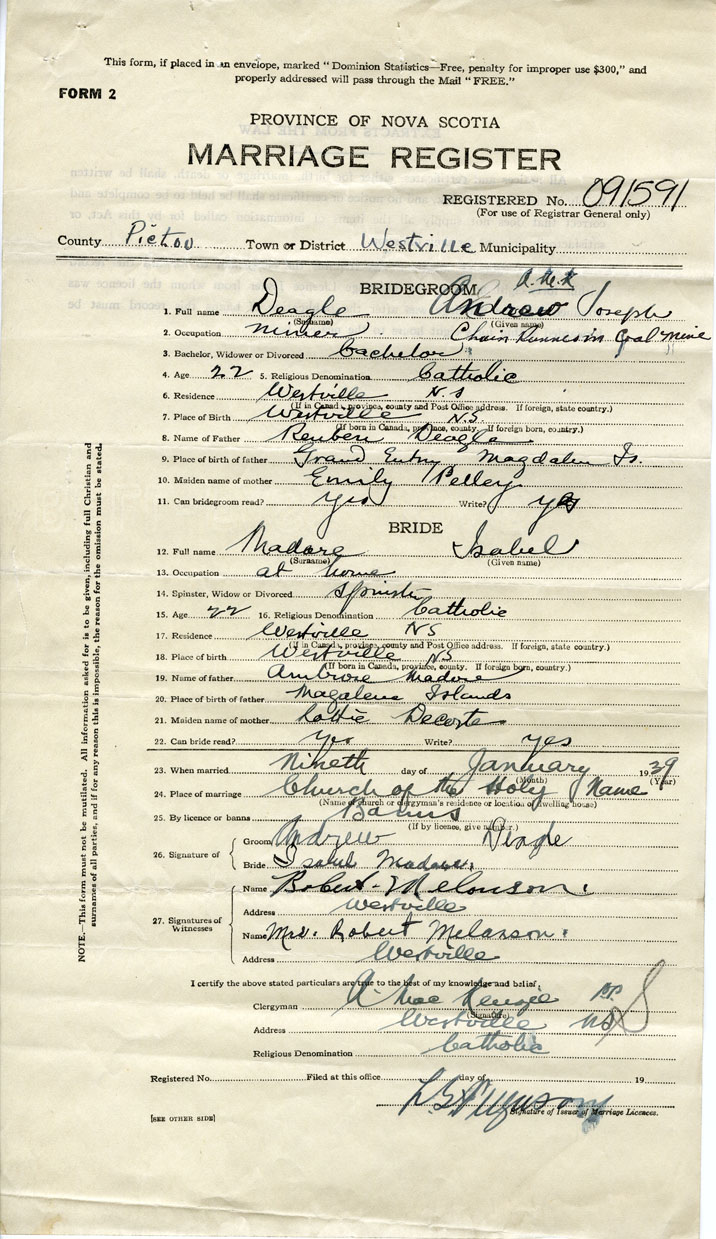 This form, if placed in an envelope, marked "Dominion Statistics—Free, penalty for improper use $300," and
properly addressed will pass through the Mail "FREE."
FORM 2
PROVINCE OF NOVA SCOTIA
MARRIAGE REGISTER
REGISTERED No. 091591
(For use of Registrar General only)
County Pictou Town or District Westville Municipality
BRIDEGROOM
1. Full name Deagle Andrew Joseph
(Surname) (Given name)
2. Occupation miner Chain Runner in Coal Mine
3. Bachelor, Widower or Divorced bachelor
4. Age 22 5. Religious Denomination Catholic
6. Residence Westville N.S
(If in Canada, province, county and Post Office address. If foreign, state country.)
7. Place of Birth Westville N.S.
(If born in Canada, province, county. If foreign born, country.)
8. Name of Father Reuben Deagle
9. Place of birth of father Grand Entry Magdalen Is.
10. Maiden name of mother Emily Pelley
11. Can bridegroom read? yes Write? yes
BRIDE
12. Full name Madore Isabel
(Surname) (Given name)
13. Occupation at home
14. Spinster, Widow or Divorced Spinster
15. Age 22 16. Religious Denomination Catholic
17. Residence Westville NS
(If in Canada, province, county and Post Office address. If foreign, state country.)
18. Place of birth Westville NS
(If born in Canada, province, county. If foreign born, country.)
19. Name of father Ambrose Madore
20. Place of birth of father Magalene Islands
21. Maiden name of mother Lottie Decoste
22. Can bride read? Yes Write? yes
23. When married Nineth day of January 1939
(Month) (Year)
24. Place of marriage Church of the Holy Name
(Name of church or clergyman's residence or location of dwelling house)
25. By licence or banns Banns
(If by licence, give number.)
26. Signature of Groom Andrew Deagle
Bride Isabel Madore.
27. Signatures of Witnesses Name Robert Melonson.
Address Westville
Name Mrs. Robert Melanson.
Address Westville
I certify the above stated particulars are true to the best of my knowledge and belief.
Clergyman A Mac Kenzie P.P.
(Signature)
Address Westville NS
Religious Denomination Catholic
Registered No. Filed at this office day of 19
Signature of Issuer of Marriage Licences.
[SEE OTHER SIDE]
NOTE.—This form must not be mutilated. All information asked for is to be given, including full Christian and
surnames of all parties, and if for any reason this is impossible, the reason for the omission must be stated.